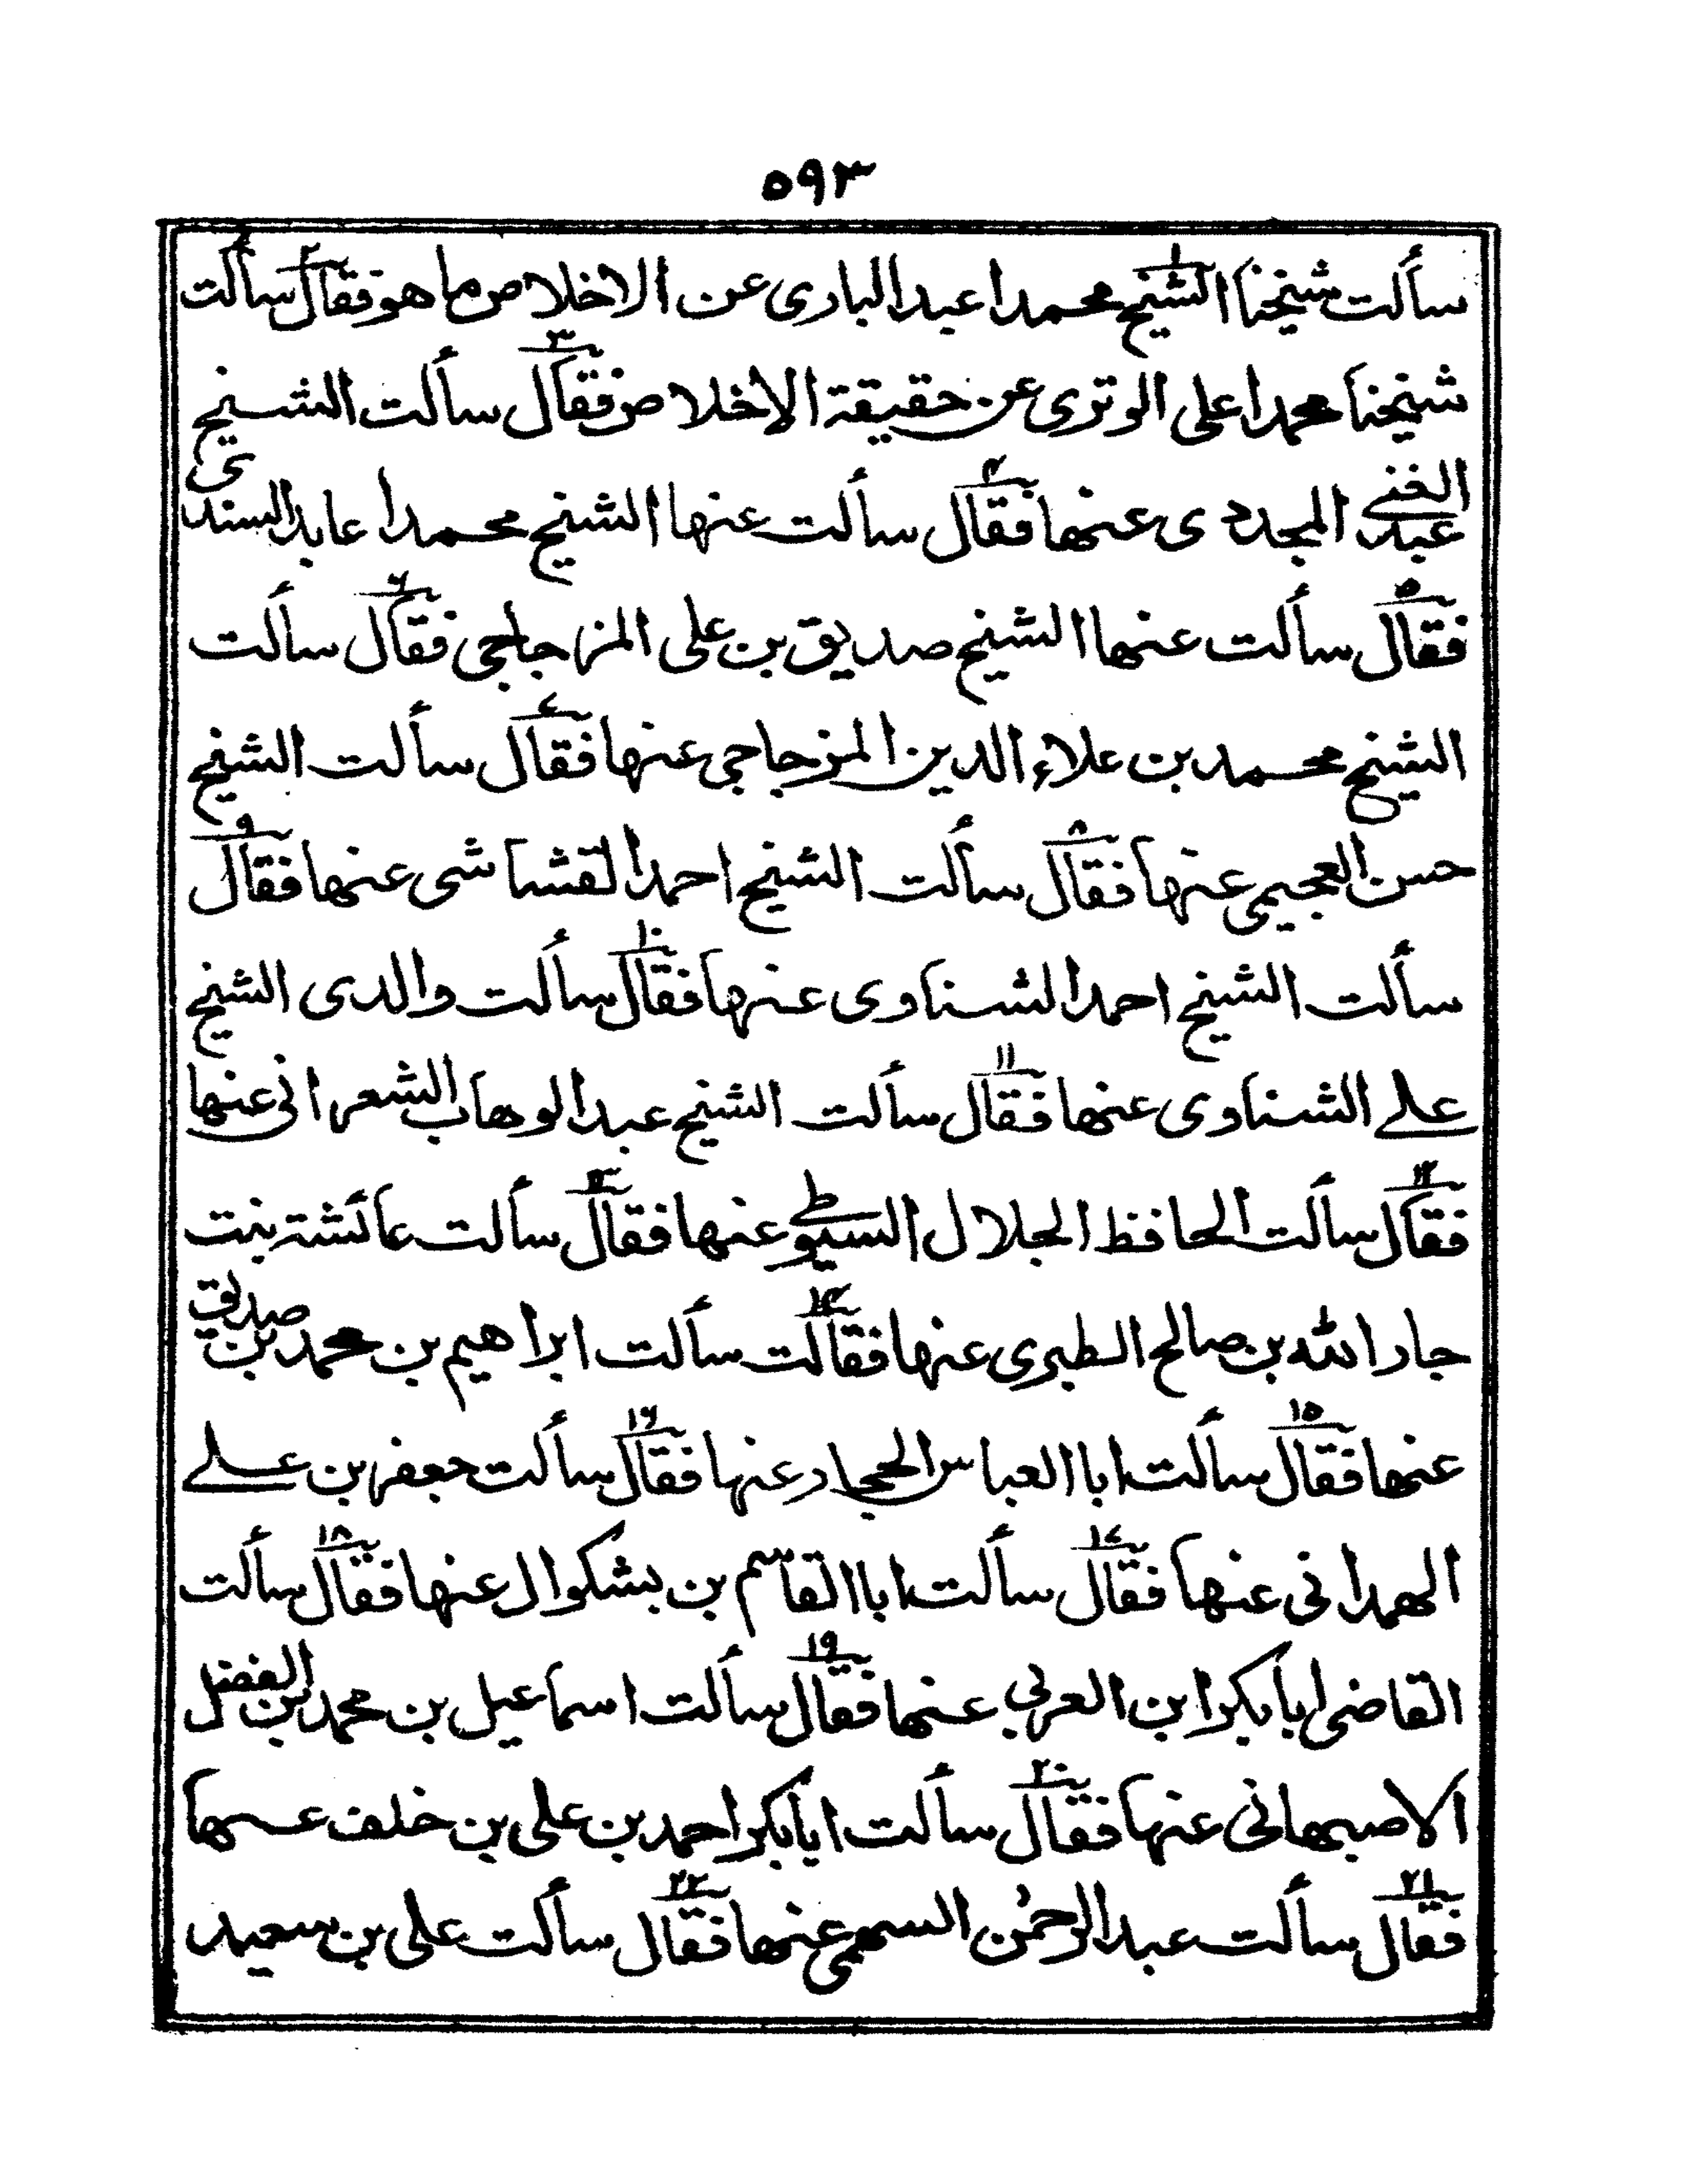 ٥٩٣
سألت شيخنا الشيخ محمدا عبد الباري عن الاخلاص ما هو فقال سألت
١ ٢
شيخنا محمدا على الوترى عن حقيقة الاخلاص فقال سألت الشيخ
٣
عبد الغني المجددى عنها فقال سألت عنها الشيخ محمدا عابد السندى
٤
فقال سألت عنها الشيخ صديق بن على المزجاجى فقال سألت
٥ ٦
الشيخ محمد بن علاء الدين المزجاجى عنها فقال سألت الشيخ
٧
حسن العجيمى عنها فقال سألت الشيخ احمد القشاشى عنها فقال
٨ ٩
سألت الشيخ احمد الشناوى عنها فقال سألت والدى الشيخ
١٠
على الشناوى عنها فقال سألت الشيخ عبد الوهاب الشعرانى عنها
١١
فقال سألت الحافظ الجلال السيوطى عنها فقال سألت عائشة بنت
١٢ ١٣
جار الله بن صالح الطبرى عنها فقالت سألت ابراهيم بن محمد بن صديق
١٤
عنها فقال سألت ابا العباس الحجار عنها فقال سألت جعفر بن على
١٥ ١٦
الهمدانى عنها فقال سألت ابا القاسم بن بشكوال عنها فقال سألت
١٧ ١٨
القاضى ابا بكر ابن العربي عنها فقال سألت اسماعيل بن محمد بن الفضل
١٩
الاصبهانى عنها فقال سألت ابا بكر احمد بن على بن خلف عنها
٢٠
فقال سألت عبد الرحمٰن السمعى عنها فقال سألت على بن سعيد
٢١ ٢٢